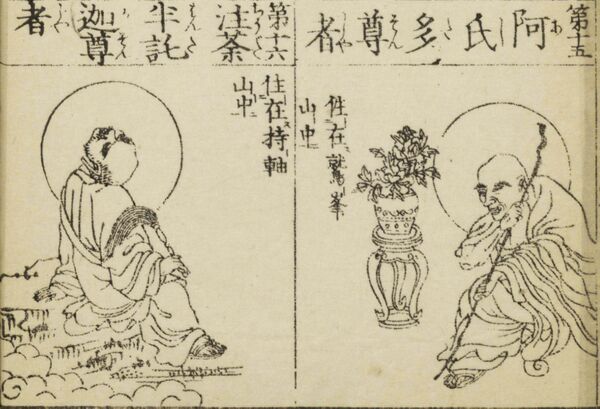 第十五
阿氏多尊者
住在鷲峯
山中
第十六
注荼半託迦尊者
住在持軸
山中